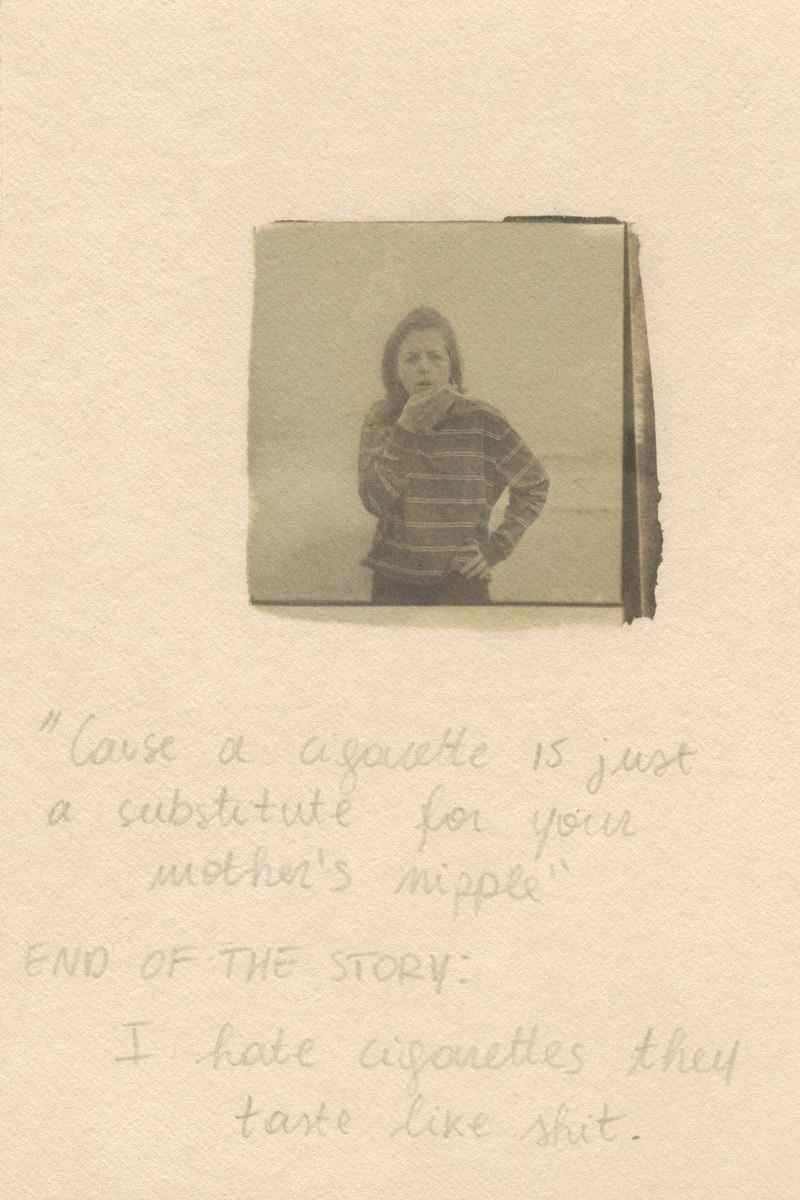 "Cause a cigarette is just
a substitute for your
mother's nipple"
END OF THE STORY:
I hate cigarettes they
taste like shit.